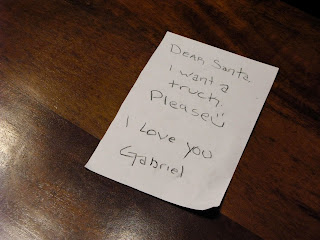 Dear Santa
I want a
truck.
Please☺
I Love you
Gabriel